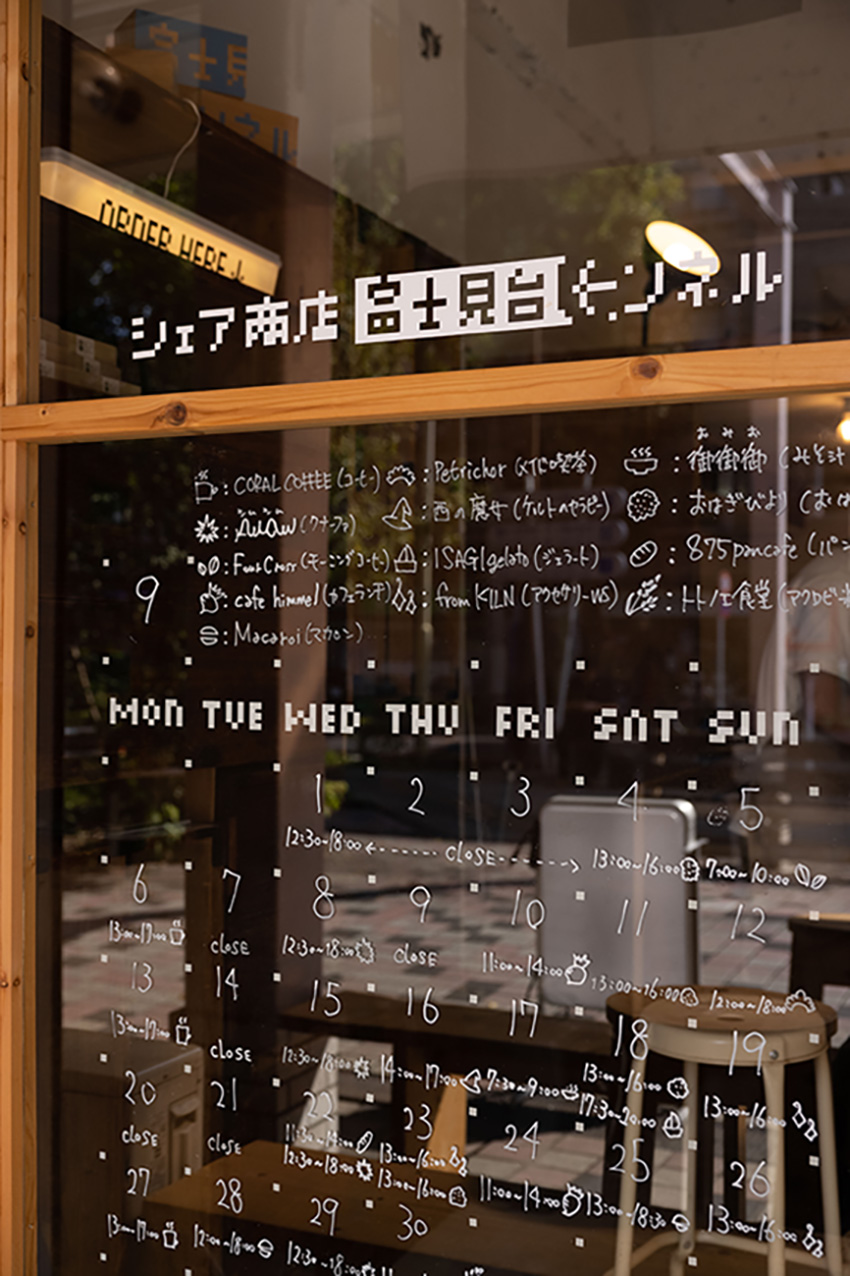 富士見
ンネル
ORDER HERE ↓
シェア商店 富士見台トンネル
: CORAL COFFEE (コーヒー)
: Petrichor (メイドの喫茶)
おみお
: 御御御 (みそ汁
: AuAu
: 西の魔女 (ケルトのセラピー)
: おはぎびより (おは
: FourCross (モーニングコーヒー)
: ISAGI gelato (ジェラート)
: 875pancafe (パン
9
: cafe himmel (カフェランチ)
: from KILN (アクセサリーWS)
: トトノエ食堂
: Macaroi (マカロン)
MON TUE WED THU FRI SAT SUN
1 2 3 4 5
12:30~18:00 ←-----CLOSE-----→ 13:00~16:00 7:00~10:00
6 7 8 9 10 11 12
13:00~17:00 CLOSE 12:30~18:00 CLOSE 11:00~14:00 13:00~16:00 12:00~18:00
13 14 15 16 17 18 19
13:00~17:00 CLOSE 12:30~18:00 14:00~17:00 7:30~9:00 13:00~16:00 13:00~16:00
17:30~20:00
20 21 22 23 24 25 26
CLOSE CLOSE 11:30~14:00 13:00~16:00 11:00~14:00 13:00~18:30 13:00~16:00
12:30~18:00 13:00~16:00
27 28 29 30
13:00~17:00 12:00~18:00 12:30~18:00